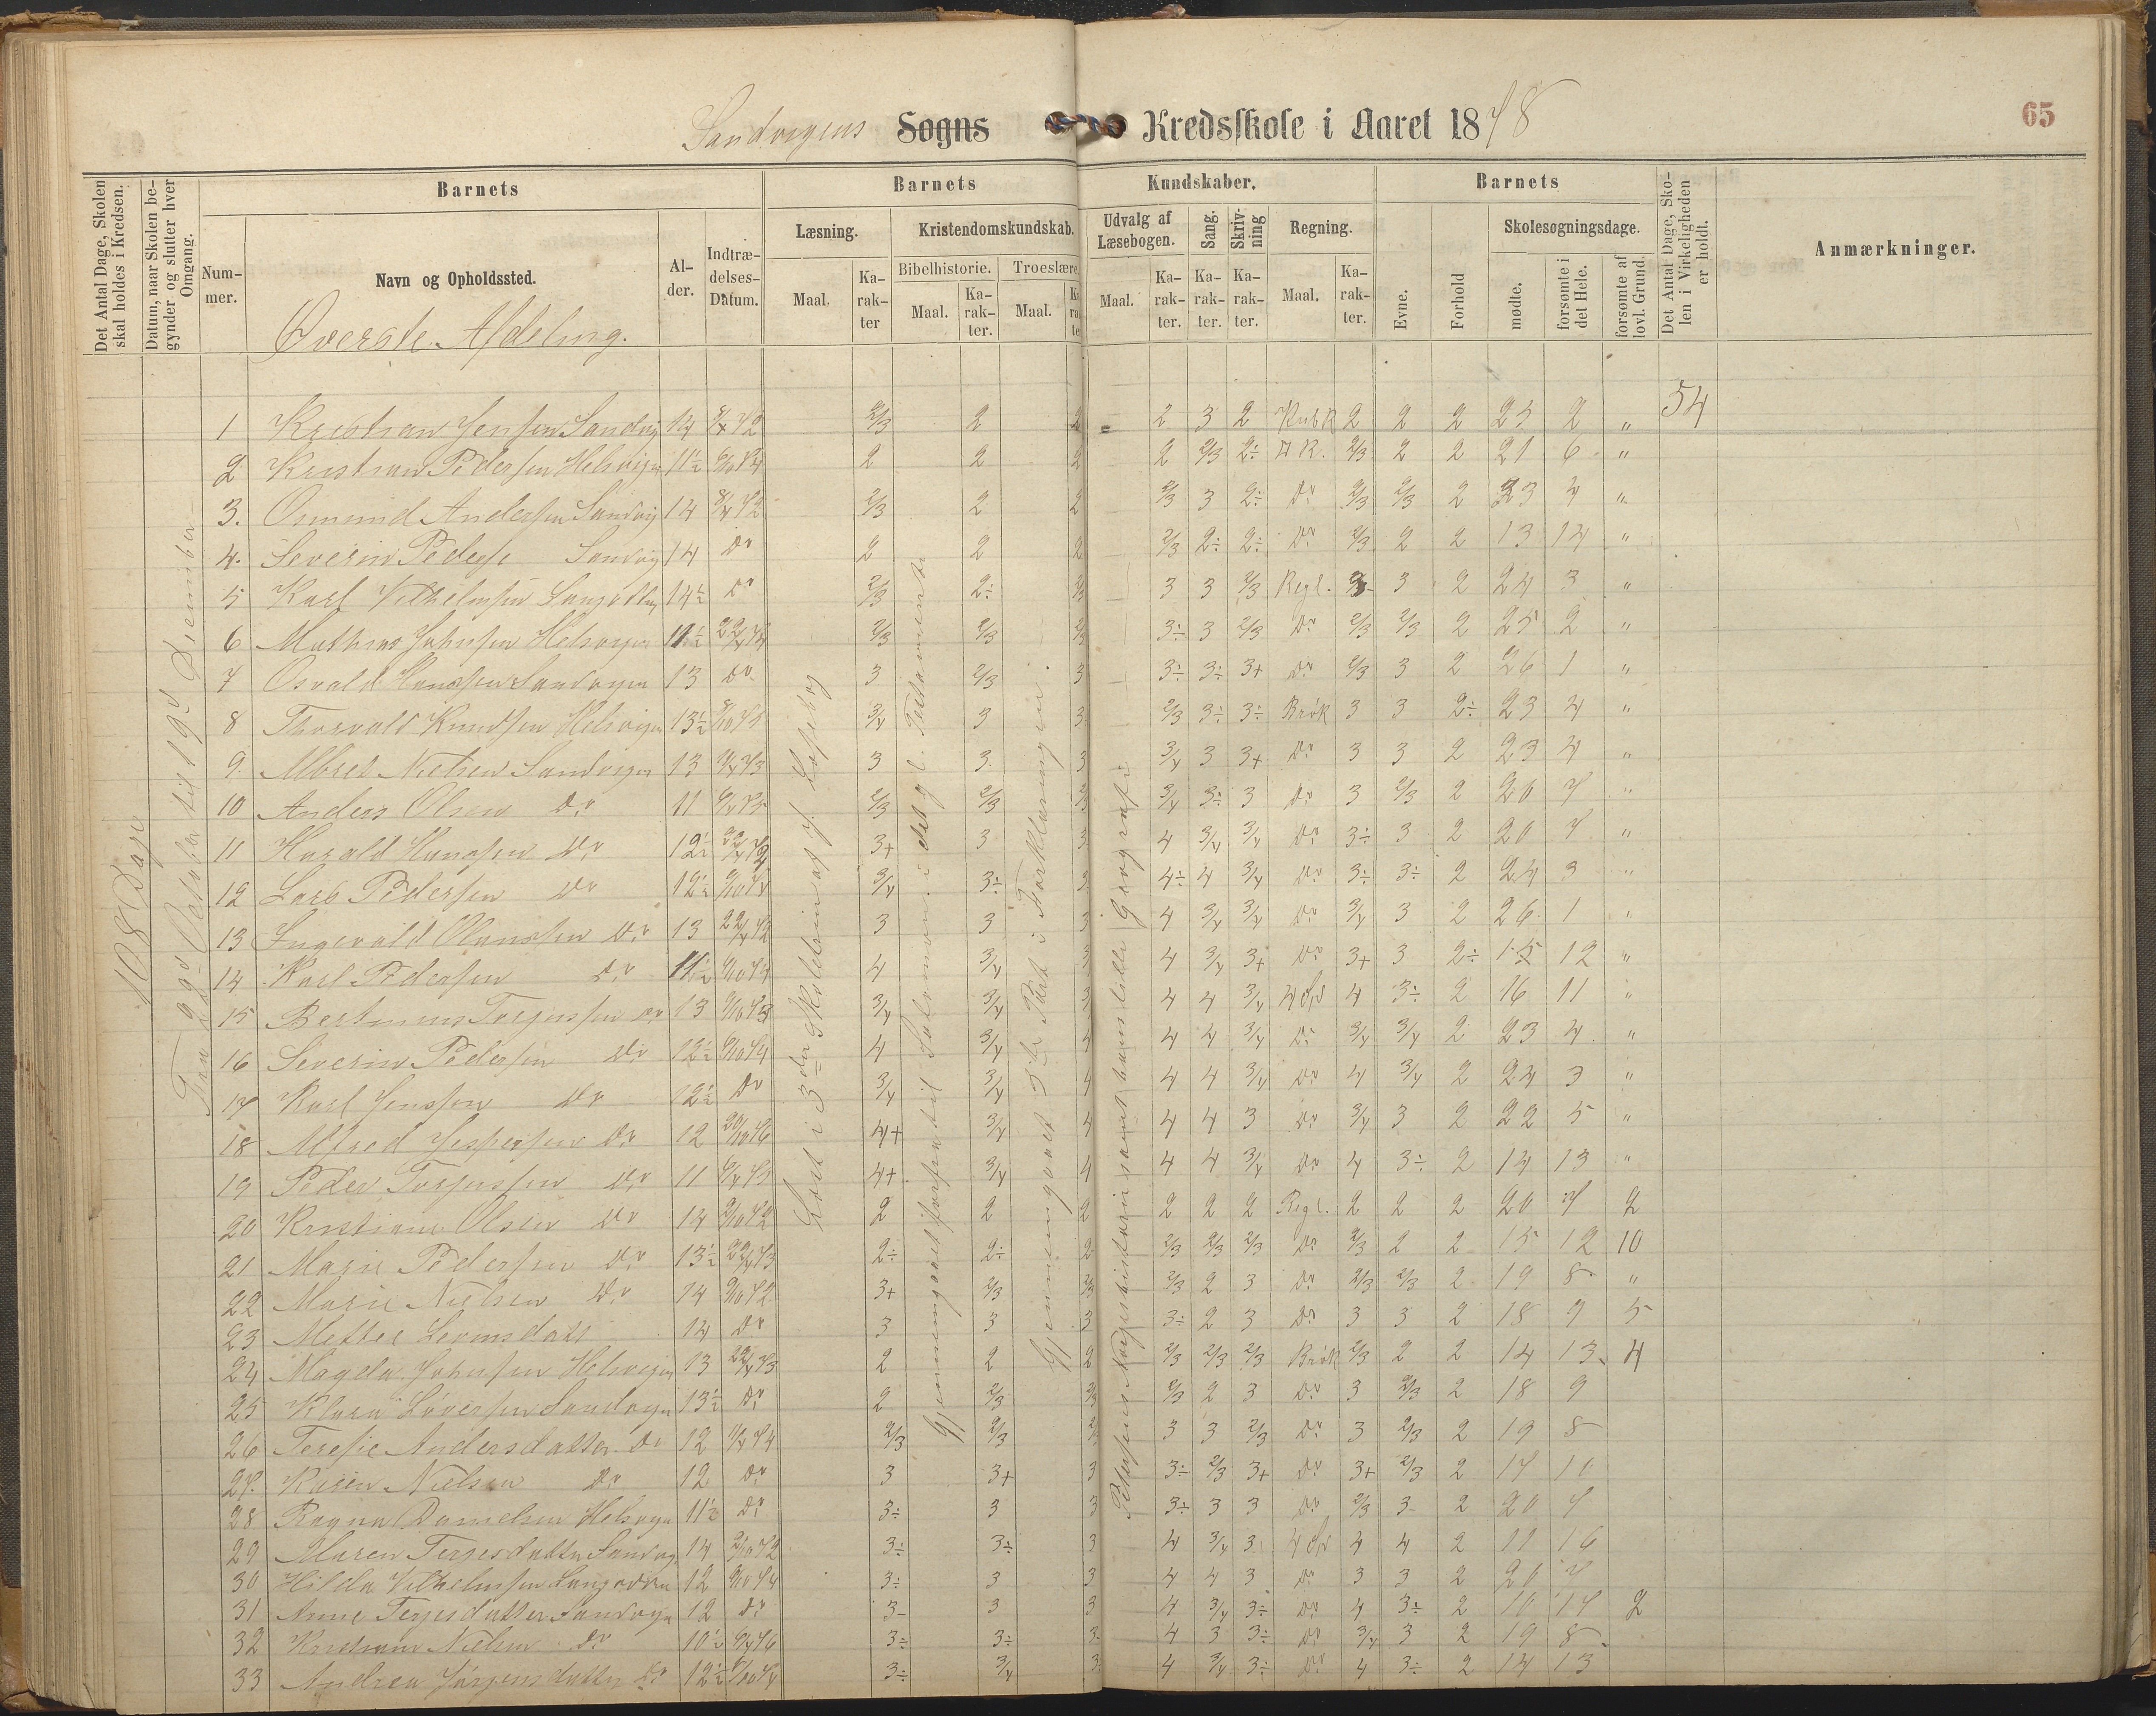 65
Sandvigens Sogns Kredsskole i Aaret 1878
Det Antal Dage, Skolen skal holdes i Kredsen.
Datum, naar Skolen begynder og slutter hver Omgang.
Barnets
Barnets Kundskaber.
Barnets
Det Antal Dage, Skolen i Virkeligheden er holdt.
Anmærkninger.
Nummer.
Navn og Opholdssted.
Alder.
Indtrædelses-Datum.
Læsning.
Kristendomskundskab.
Udvalg af Læsebogen.
Sang.
Skrivning
Regning.
Evne.
Forhold
Skolesøgningsdage.
Maal.
Karakter
Bibelhistorie.
Troeslære
Maal.
Karakter.
Maal.
Maal.
Karakter.
Karakter.
Karakter.
Maal.
Karakter.
mødte.
forsømte i det Hele.
forsømte af lovl. Grund.
Øverste Afdeling.
108 Dage
til 19d December
Læst i 3die Skoletrin af J. Læsebog
Gjennemgaaet forfra til Salomon i det gl. Testamente
Gjennemgaaet 3die Part i Forklaringen.
Petersens Norgeshistorie samt hans lille Geografi
54
1 Kristian Jensen Sandvig 14 2/3 2 2 2 3 2 Kubik 2 2 2 25 2 "
2 Kristian Pedersen Helvigen 11½ 2 2 2 2 2/3 2÷ 2/3 2 2 21 6 "
3. Osmund Andersen Sandvig 14 2/3 2 2 2/3 3 2÷ Do 2/3 2/3 2 23 4 "
4. Severin Peders Sandvig 14 Do 2 2 2 2/3 2÷ 2÷ Do 2/3 2 2 13 14 "
5 Karl Vilhelmsen 14½ Do 2/3 2÷ 2/3 3 3 2/3 Regl. 3 3 2 24 3 "
6 Mathias Johnsen Helvigen 11½ 2/3 2/3 2/3 3÷ 3 2/3 Do 2/3 2/3 2 25 2 "
7 Osvald Hansen Sandvigen 13 Do 3 2/3 3 3÷ 3÷ 3+ Do 2/3 3 2 26 1 "
8 Thorvald Knudsen Helvigen 13½ 3/4 3 3 2/3 3÷ 3÷ Brøk 3 3 2÷ 23 4 "
9. Albret Nielsen Sandvigen 13 3 3 3 3/4 3 3+ Do 3 3 2 23 4 "
10 Anders Olsen Do 11 2/3 2/3 2/3 3/4 3÷ 3 Do 3 2/3 2 20 7 "
11 Harald Hansen Do 12½ 3+ 3 3 4 3/4 3/4 Do 3÷ 3 2 20 7 "
12 Lars Pedersen Do 12½ 3/4 3÷ 3 4÷ 4 3/4 Do 3÷ 3÷ 2 24 3 "
13 Ingevald Olaussen Do 13 3 3 3 4 3/4 3/4 Do 3/4 3 2 26 1 "
14 Karl Pedersen Do 11½ 4 3/4 3 4 3/4 3+ Do 3+ 3 2÷ 15 12 "
15 Bertinius Torjussen Do 13 3/4 3/4 3 4 4 3/4 4 3÷ 2 16 11 "
16 Severin Pedersen Do 12½ 4 3/4 4 4 4 3/4 Do 3/4 3/4 2 23 4 "
17 Karl Jensen Do 12½ Do 3/4 3/4 4 4 4 3/4 Do 4 3/4 2 24 3 "
18 Alfred Jespersen Do 12 4+ 3/4 4 4 4 3 Do 3/4 3 2 22 5 "
19 Peder Torjussen Do 11 4+ 3/4 4 4 4 3/4 Do 4 3÷ 2 14 13 "
20 Kristiane Olsen Do 14 2 2 2 2 2 2 Regl. 2 2 2 20 7 2
21 Marie Pedersen Do 13½ 2÷ 2÷ 2 2/3 2/3 2/3 Do 2/3 2 2 15 12 10
22 Marie Nielsen Do 14 3+ 2/3 2/3 2/3 2 3 Do 2/3 2/3 2 19 8 "
23 Mettee 14 Do 3 3 3 3÷ 2 3 Do 3 3 2 18 9 5
24 Magda Johnsen Helvigen 13 2 2 2 2/3 2/3 2/3 Brøk 2/3 2 2 14 13 4
25 Klara Sandvigen 13½ Do 2 2/3 2/3 2/3 2 3 Do 3 2/3 2 18 9
26 Teresie Andersdatter Do 12 2/3 2/3 3 3 2/3 Do 3 2/3 2 19 8
27. Karen Nielsen Do 12 Do 3 3+ 3 3÷ 2/3 3+ Do 3+ 2/3 2 17 10
28 Ragna Danielsen Helvigen 11½ Do 3÷ 3 3 3÷ 3 3 Do 2/3 3 2 20 7
29 Maren Terjesdatter Sandvig 14 3÷ 3÷ 3 4 3/4 3 4 4 2 11 16
30 Hilda Vilhelmsen 12 3÷ 3 3 4 4 3 Do 3 3 2 20 7
31 Anne Terjesdatter Sandvigen 12 Do 3- 3 3 4 3/4 3÷ Do 4 3÷ 2 10 17 2
32 Kristiane Nielsen Do 10½ 3÷ 3÷ 3 4 3 3÷ Do 3/4 3 2 19 8
33 Andrea Jørgensdatter Do 12½ 3÷ 3/4 3 4 3/4 3÷ Do 4 3÷ 2 14 13